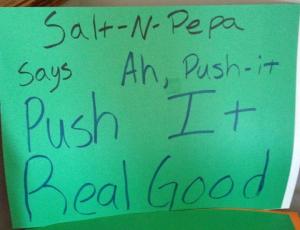 Salt-N-Pepa
says Ah, Push-it
Push It
Real Good